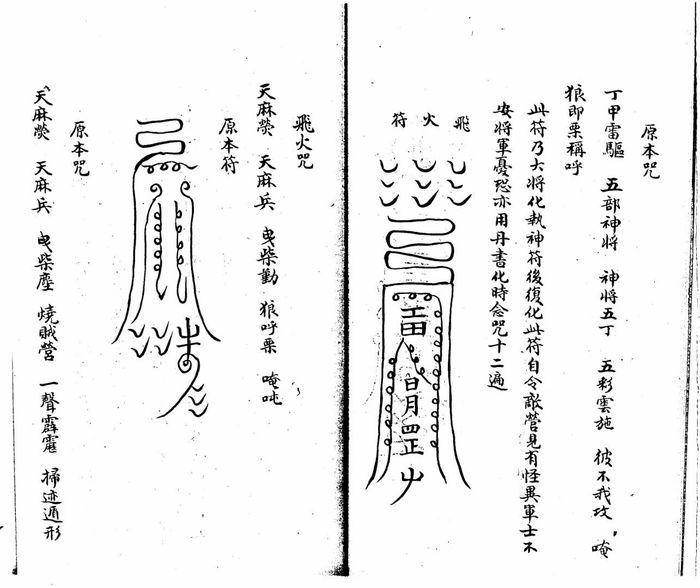 原本咒
丁甲雷驅 五部神將 神將五丁 五彩雲施 彼不我攻 唵
狼即栗稱呼
此符乃大將化執神符後復化此符自令敵營見有怪異軍士不
安將軍憂恐亦用丹書化時念咒十二遍
飛火符
日月四正
飛火咒
天麻熒 天麻兵 曳柴勤 狼呼栗 唵吨
原本符
原本咒
天麻熒 天麻兵 曳柴塵 燒賊營 一聲霹靂 掃迹遁形